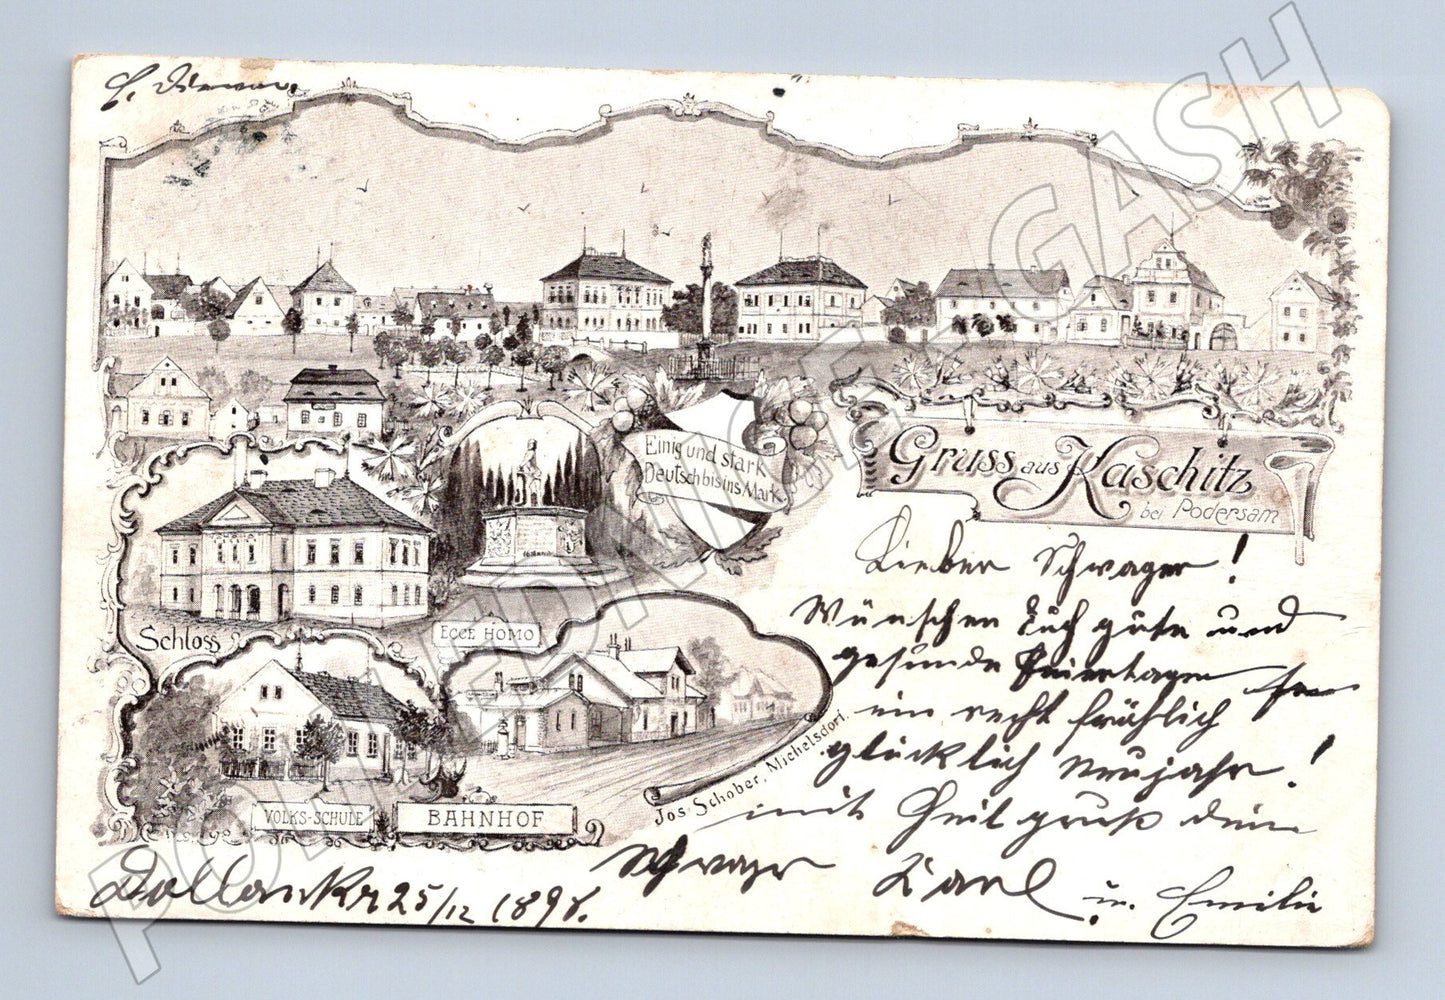 Einig und stark
Deutsch bis ins Mark
Gruss aus Kaschitz
bei Podersam
Schloss
ECCE HOMO
VOLKS-SCHULE
BAHNHOF
Jos. Schober, Michelsdorf.
Lieber Schwager!
Wünschen Euch gute und
gesunde Feiertage
ein recht fröhlich
glücklich Neujahr!
mit Heil gruß dein
Schwager Karl u. Emilie
25/12 1898.
POHLEDNICE - GASH